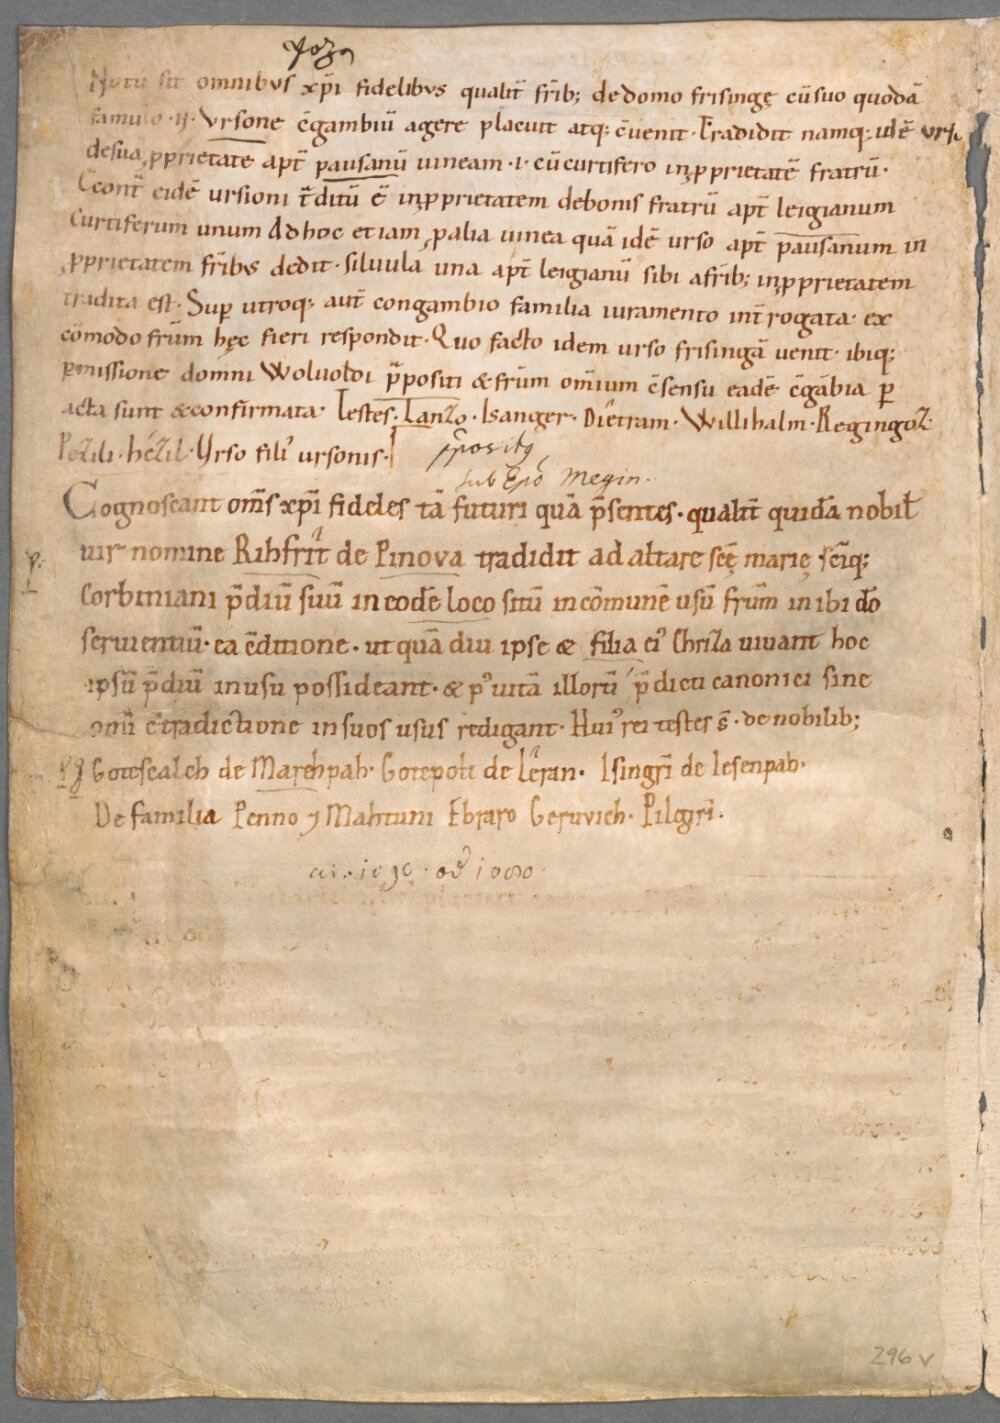 Notū sit omnibus xp̄i fidelibus qualit̄ fr̄ib; de domo frisingę cū suo quodā
famulo .n. Ursone c̄gambiū agere placuit atq; c̄uenit. Tradidit namq; idē urso
de sua ꝓprietate apt̄ pausanū uineam .i. cū curtifero in ꝓprietatē fratrū.
Econt̄ eidē ursioni t̄ditū ē in ꝓprietatem de bonis fratrū apt̄ leigianum
Curtiferum unum Ad hoc etiam ꝓ alia uinea quā idē urso apt̄ pausanum in
ꝓprietatem fr̄ibus dedit. siluula una apt̄ leigianū sibi a fr̄ib; in ꝓprietatem
tradita est. Sup̄ utroq; aut̄ congambio familia iuramento int̄rogata. ex
cōmodo fr̄um hęc fieri respondit. Quo facto idem urso frisingā uenit. ibiq;
ꝑmissione domni Wolupoldi p̄positi & fr̄um om̄ium c̄sensu eadē c̄gābia ꝑ
acta sunt & confirmata. Testes. Lanzo. Isanger. Dietram. Willihalm. Regingoz.
Pezili. hézil. Urso fili᾽ ursonis.
p̄posity
sub Ep̄o Megin.
Cognoscant om̄s xp̄i fideles tā futuri quā p̄sentes. qualit̄ quidā nobil̄
uir nomine Rihfrit de Pinova tradidit ad altare scē marię. sc̄iq;
Corbiniani p̄diū suū in eodē loco sitū in cōmunē usū fr̄um inibi dō
seruientiū. ea c̄ditione. ut quā diu ipse & filia ei᾽ Chriza uiuant hoc
ipsū p̄diū in usu possideant. & p᾽ uitā illorū p̄dicti canonici sine
omī c̄tradictione in suos usus redigant. Hui᾽ rei testes s̄. de nobilib;
Gotescalch de Marchpah. Gotepolt de Leran. Isingri de Iesenpah.
De familia Penno ⁊ Mahtuni Ebraro Geruuich. Pilegri.
296 v